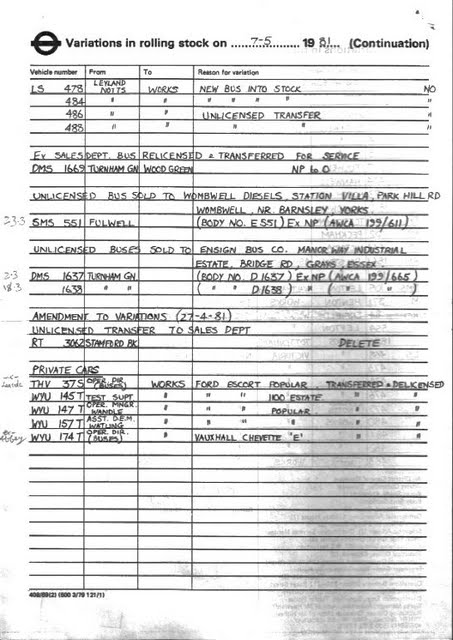 Variations in rolling stock on 7-5 1981. (Continuation)
Vehicle number From To Reason for variation
LS 478 LEYLAND NOTTS WORKS NEW BUS INTO STOCK NO
484 " " " " " " "
486 " " UNLICENSED TRANSFER "
485 " " " " "
EX SALES DEPT. BUS RELICENSED & TRANSFERRED FOR SERVICE
DMS 1669 TURNHAM GN WOOD GREEN NP to O
UNLICENSED BUS SOLD TO WOMBWELL DIESELS, STATION VILLA, PARK HILL RD
WOMBWELL, NR. BARNSLEY, YORKS.
23.3 SMS 551 FULWELL (BODY NO. E 551) Ex NP (AWCA 199/611)
UNLICENSED BUSES SOLD TO ENSIGN BUS CO. MANOR WAY INDUSTRIAL
ESTATE, BRIDGE RD, GRAYS, ESSEX
2.3 DMS 1637 TURNHAM GN. (BODY NO. D 1637) Ex NP (AWCA 199/665)
18.3 1638 " " ( " " D1638) " " ( " " )
AMENDMENT TO VARIATIONS (27-4-81)
UNLICENSED TRANSFER TO SALES DEPT
RT 3062 STAMFORD BK DELETE
PRIVATE CARS
THV 37S OPER. DIR. (BUSES) WORKS FORD ESCORT POPULAR. TRANSFERRED & DELICENSED
WYU 145T TEST SUPT " " " 1100 ESTATE. " "
WYU 147T OPER. MNGR. WANDLE " " " POPULAR " "
WYU 157T ASST. D.E.M. WATLING " " " " " "
WYU 174T OPER. DIR. (BUSES) " VAUXHALL CHEVETTE 'E' " "